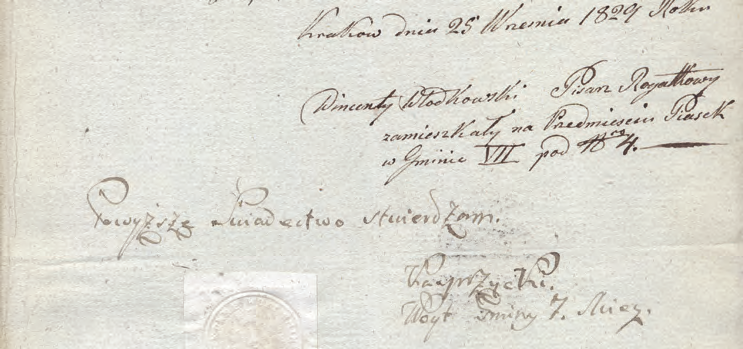 Krakow dnia 25 Wrzesnia 1829 Roku
Wincenty Włodkowski Pisarz Rogatkowy
zamieszkały na Przedmiesciu Piasek
w Gminie VII pod Nro 4.
Powyższe Swiadectwo stwierdzam.
Kasprzycki.
Woyt Gminy 7. Miey.